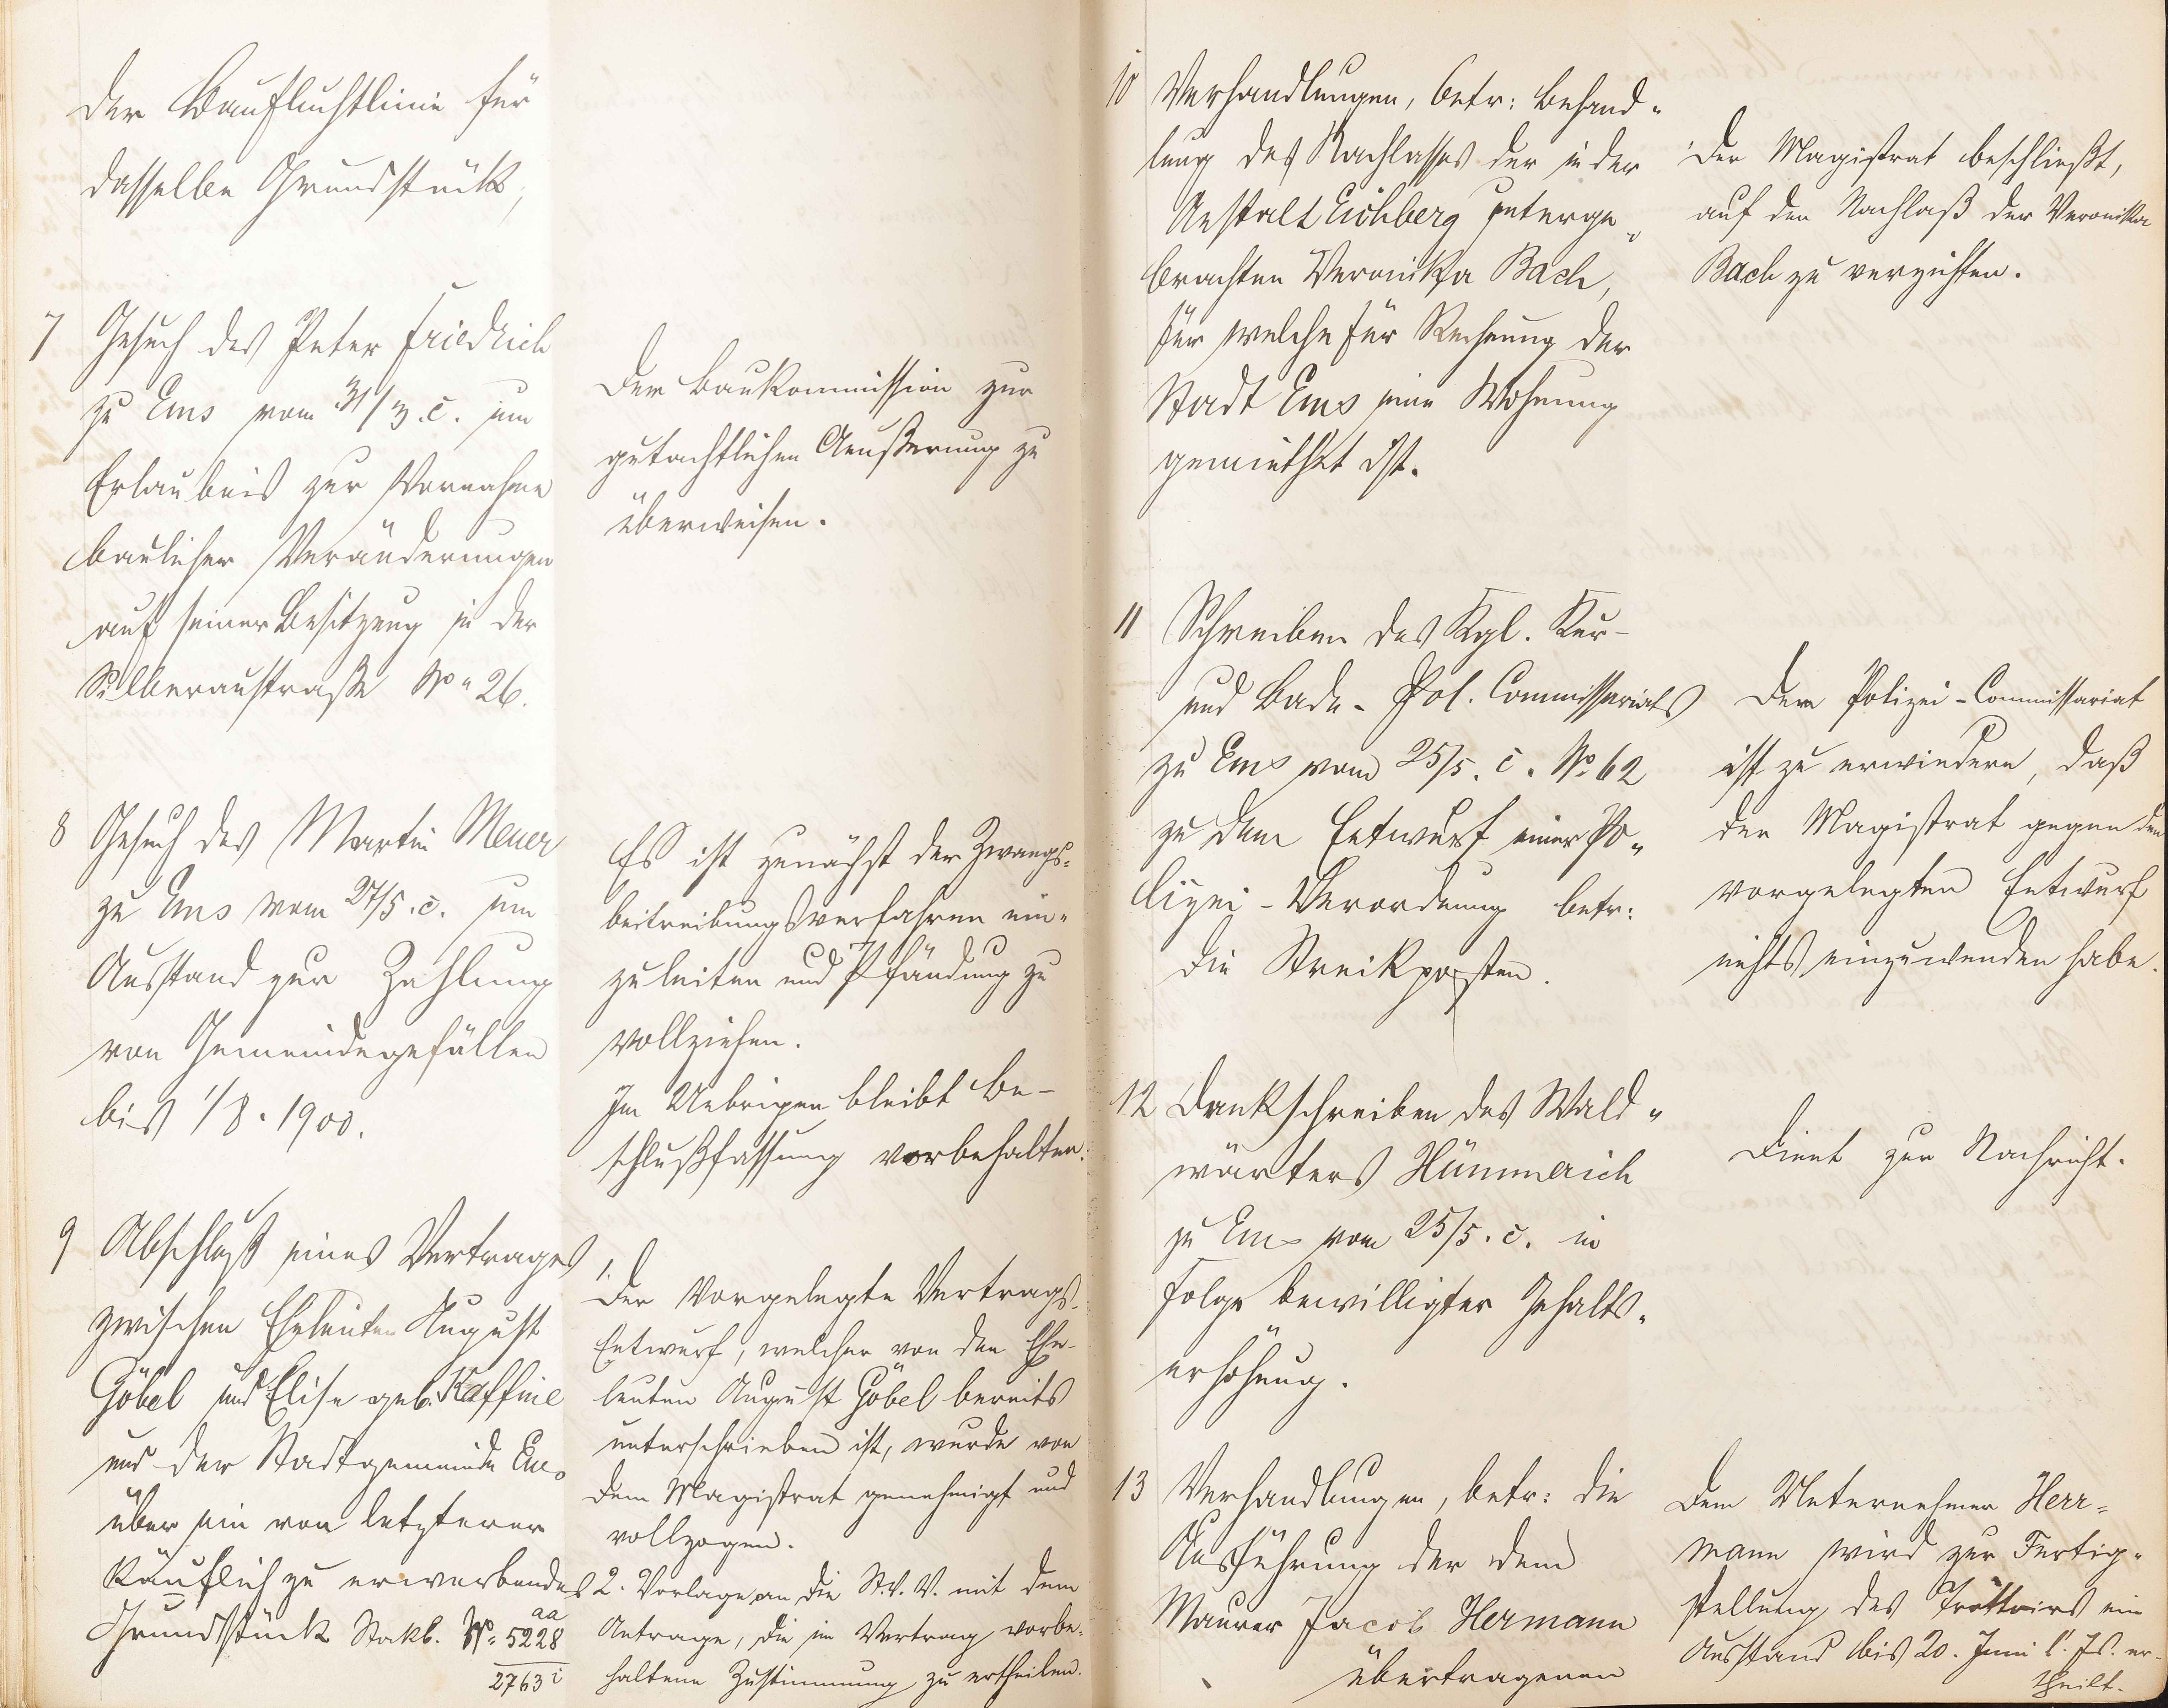 der Baufluchtlinie für
dasselbe Grundstück,
7 Gesuch des Peter Friedrich
zu Ems vom 31/3. c. um
Erlaubnis zur Vornahme
baulicher Veränderungen
auf seiner Besitzung in der
Silberaustraße No 26.
Der Baukommission zur
gutachtlichen Aeußerung zu
überweisen.
8 Gesuch des Martin Meuer
zu Ems vom 27/5. c. um
Ausstand zur Zahlung
von Gemeindegefällen
bis 1/8. 1900.
Es ist zunächst der Zwangs-
beitreibungsverfahren ein-
zuleiten und Pfändung zu
vollziehen.
Im Uebrigen bleibt Be-
schlußfassung vorbehalten.
9 Abschluß eines Vertrages
zwischen Eheleuten August
Göbel und Elise geb. Kaffine
und der Stadtgemeinde Ems
über ein von letzterer
käuflich zu erwerbendes
Grundstück Stckb. No 5228 aa
2763 i
1.
Der vorgelegte Vertrags-
Entwurf, welcher von den Ehe-
leuten August Göbel bereits
unterschrieben ist, wurde von
dem Magistrat genehmigt und
vollzogen.
2. Vorlage an die St. V. V. mit dem
Antrage, die im Vertrag vorbe-
haltene Zustimmung zu ertheilen.
10 Verhandlungen, betr: Behand-
lung des Nachlasses der in der
Anstalt Eichberg unterge-
brachten Veronika Bach,
für welche für Rechnung der
Stadt Ems eine Wohnung
gemiethet ist.
Der Magistrat beschließt,
auf den Nachlaß der Veronika
Bach zu verzichten.
11 Schreiben des Kgl. Kur-
und Bade- Pol. Commissariats
zu Ems vom 25/5. c. No 62
zu dem Entwurf einer Po-
lizei-Verordnung betr:
die Streikposten.
Dem Polizei-Commissariat
ist zu erwiedern, daß
der Magistrat gegen den
vorgelegten Entwurf
nichts einzuwenden habe.
12 Dankschreiben des Wald-
wärters Hümmerich
zu Ems vom 25/5. c. in
Folge bewilligter Gehalts-
erhöhung.
Dient zur Nachricht.
13 Verhandlungen, betr: die
Ausführung der dem
Maurer Jacob Hermann
übertragenen
Dem Unternehmer Herr-
mann wird zur Fertig-
stellung des Trottoirs ein
Ausstand bis 20. Juni l. Js. er-
theilt.